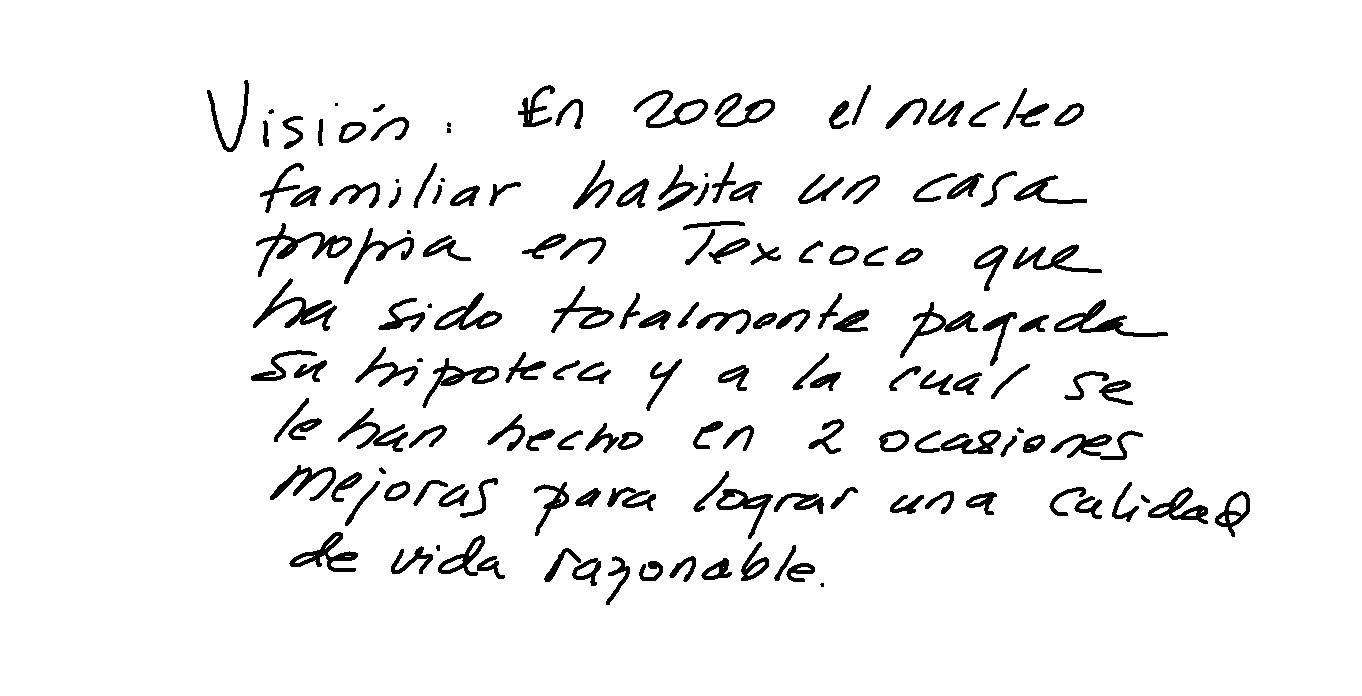 Visión: En 2020 el nucleo
familiar habita un casa
propia en Texcoco que
ha sido totalmente pagada
su hipoteca y a la cual se
le han hecho en 2 ocasiones
mejoras para lograr una calidad
de vida razonable.